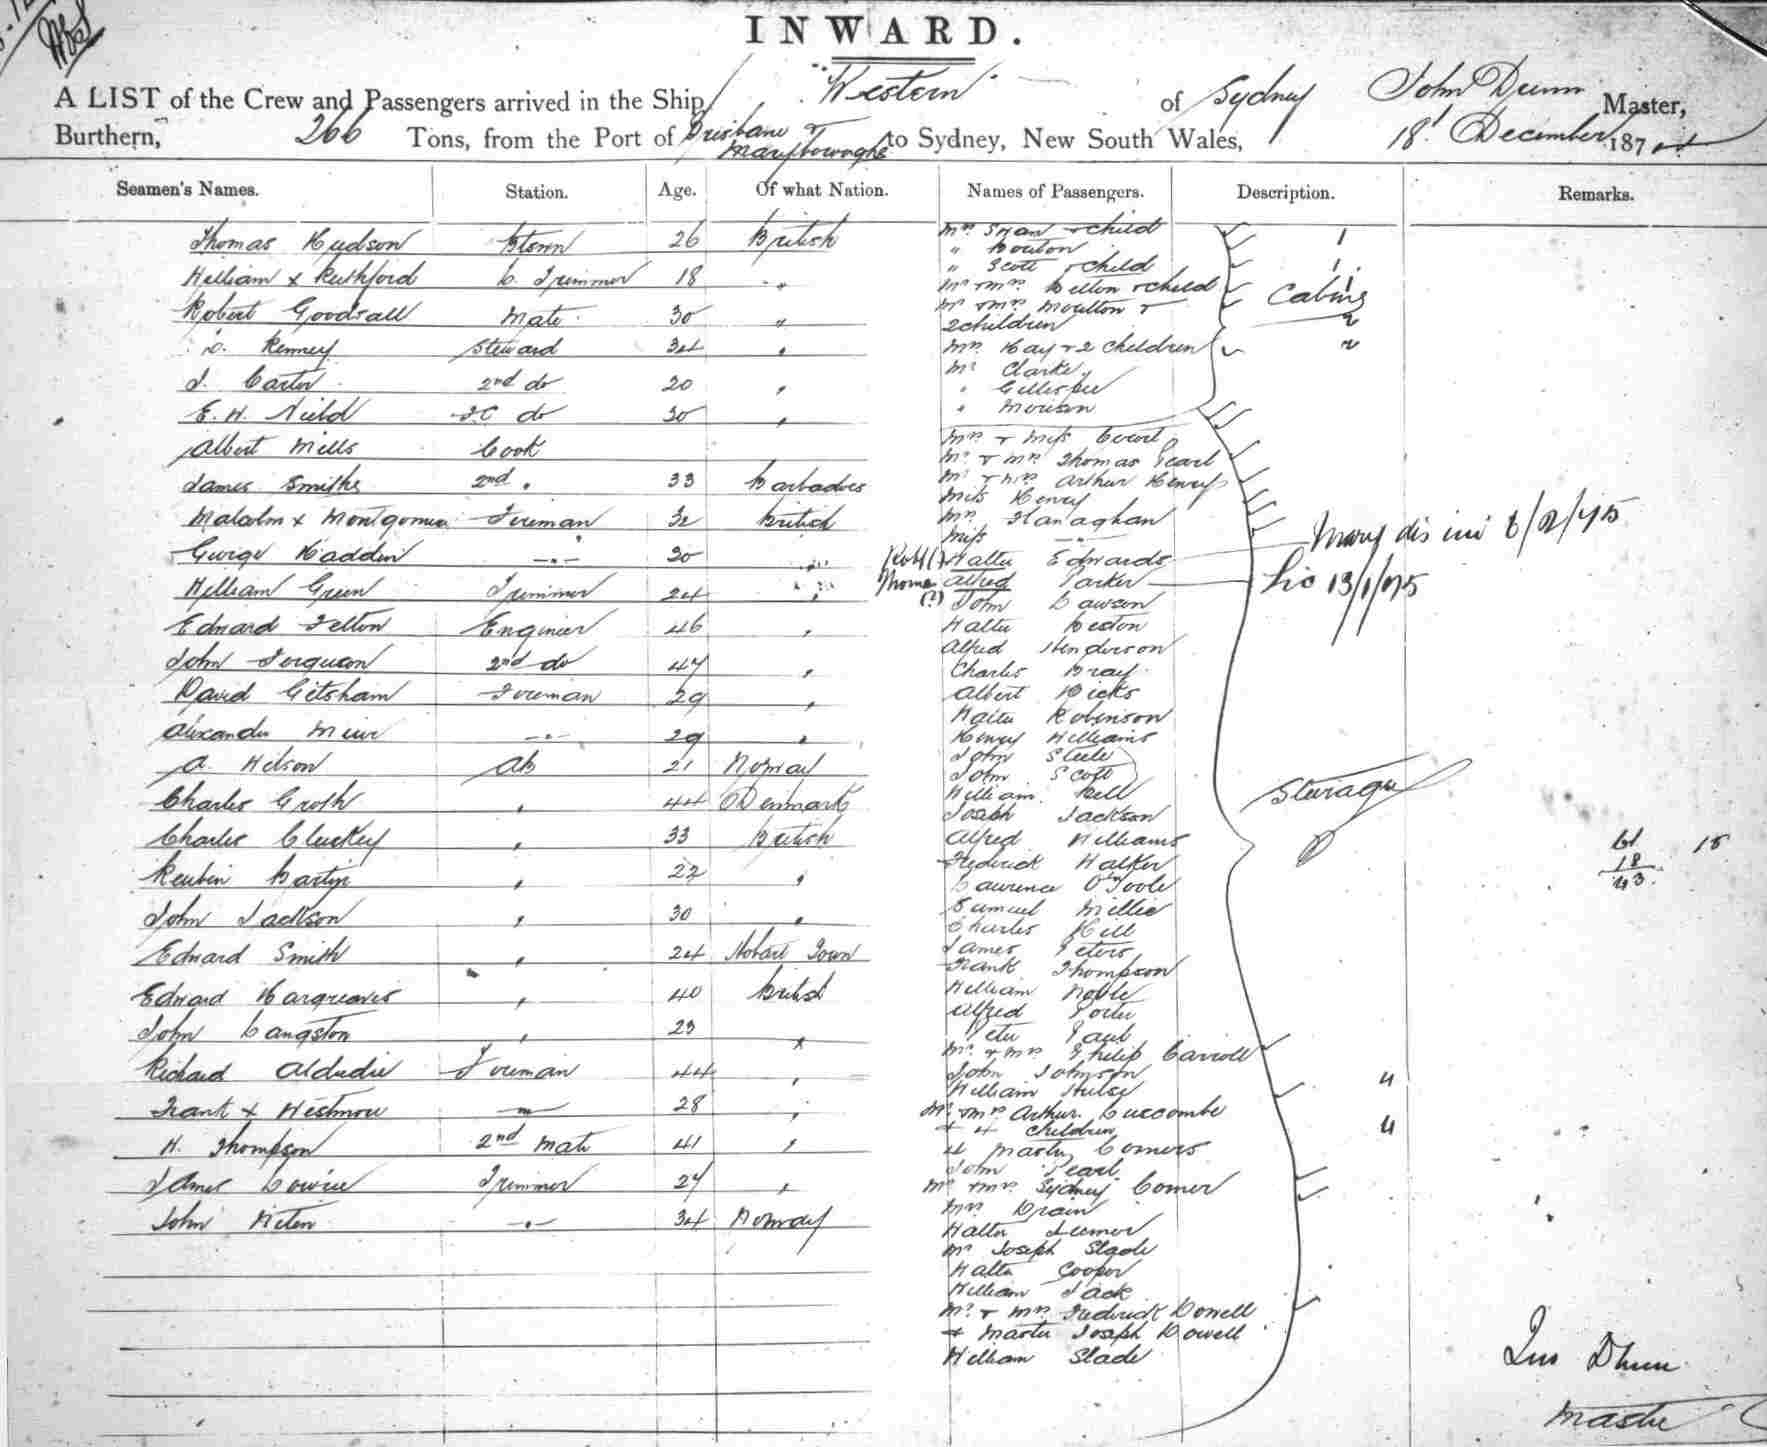 INWARD.
A LIST of the Crew and Passengers arrived in the Ship "Western" of Sydney John Dunn Master,
Burthern, 266 Tons, from the Port of Brisbane & Maryborough to Sydney, New South Wales, 18' December 187
Seamen's Names. Station. Age. Of what Nation. Names of Passengers. Description. Remarks.
Thomas Hudson 26 British
William x Ruthford C. Trimmer 18 "
Robert Goodsall Mate 30 "
Kenney Steward 34 "
J. Carter 2nd do 20 "
E. H. Nield do 30 "
Albert Mills Cook
James Smithe 2nd " 33 Barbadoes
Malcolm x Montgomer Fireman 32 British
George Hadden -"- 30
William Green Trimmer 24 "
Edward Felton Engineer 46 "
John Ferguson 2nd do 47 "
David Getsham Fireman 29 "
Alexander Muir -"- 29 "
A. Wilson AB 21 Norway
Charles Groth " 44 Denmark
Charles Cluckey " 33 British
Reubin Bartye " 22 "
John Jackson " 30 "
Edward Smith " 24 Hobart Town
Edward Hargreaves " 40 British
John Langston " 23 "
Richard Aldudie Fireman 44 "
Frank x Westmore -"- 28 "
H. Thompson 2nd Mate 41 "
James Lowrie Trimmer 27 "
John Peten -"- 34 Norway
Mrs & child
" Bouton
" Scott & child
Mr & Mrs Belton & child
Mr & Mrs Moulton &
2 children
Mrs Hay & 2 children
Mr Clarke
" Gillespie
" Morison
Cabins
Mrs & Miss
Mr & Mrs Thomas Pearl
Mr & Mrs Arthur Henry
Miss Henry
Mrs Flanaghan
Miss -"-
Walter Edwards
Alfred Parker
John Lawson
Walter Beston
Alfred Henderson
Charles Bray
Albert Hicks
Walter Robinson
Henry Williams
John Steele
John Scott
William Bell
Joseph Jackson
Alfred Williams
Frederick Walker
Lawrence O'Toole
Samuel Millie
Charles Hill
James Peters
Frank Thompson
William Noble
Alfred Porter
Peter Paul
Mr & Mrs Philip Carroll
John Johnson
William Hulse
Mr & Mrs Arthur Luccombe
& 4 children
4 Masters Comers
John Pearl
Mr & Mrs Sydney Comer
Mrs Drain
Walter
Mr Joseph Slade
Walter Cooper
William Jack
Mr & Mrs Frederick Dowell
& Master Joseph Dowell
William Slade
Steerage
Mary dis
13/1/75
61
18
43
18
Jno Dunn
Master